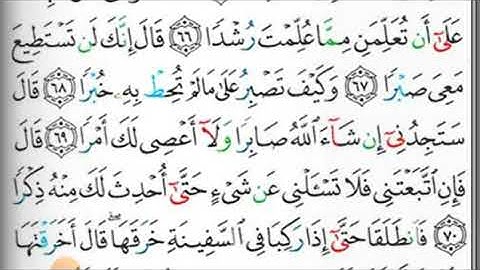 عَلَىٰٓ أَن تُعَلِّمَنِ مِمَّا عُلِّمْتَ رُشْدًا ٦٦ قَالَ إِنَّكَ لَن تَسْتَطِيعَ
مَعِىَ صَبْرًا ٦٧ وَكَيْفَ تَصْبِرُ عَلَىٰ مَا لَمْ تُحِطْ بِهِۦ خُبْرًا ٦٨ قَالَ
سَتَجِدُنِىٓ إِن شَآءَ ٱللَّهُ صَابِرًا وَلَآ أَعْصِى لَكَ أَمْرًا ٦٩ قَالَ
فَإِنِ ٱتَّبَعْتَنِى فَلَا تَسْـَٔلْنِى عَن شَىْءٍ حَتَّىٰٓ أُحْدِثَ لَكَ مِنْهُ ذِكْرًا
٧٠ فَٱنطَلَقَا حَتَّىٰٓ إِذَا رَكِبَا فِى ٱلسَّفِينَةِ خَرَقَهَا ۖ قَالَ أَخَرَقْتَهَا